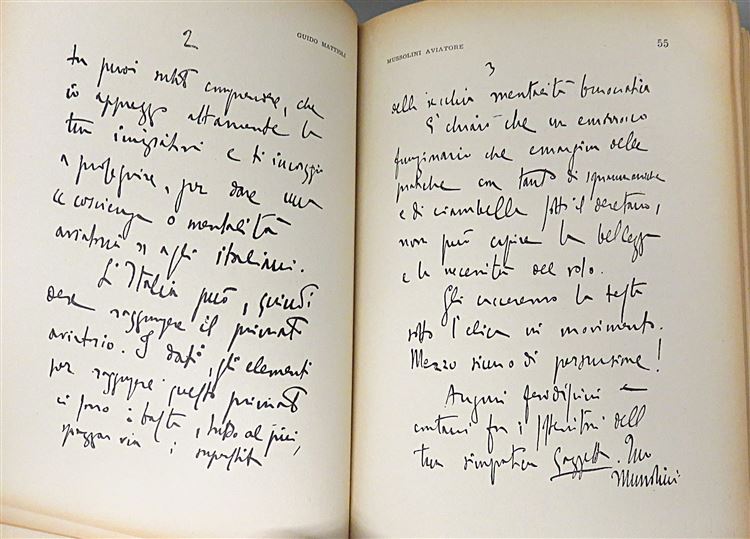 2
GUIDO MATTIOLI
tu puoi subito comprendere, che
io apprezzo altamente la
tua iniziativa e ti incoraggio
a proseguire, per dare una
« coscienza o mentalità
aviatoria » agli italiani.
L'Italia può, quindi
deve raggiungere il primato
aviatorio. I dati, gli elementi
per raggiungere questo primato
ci sono: basta, tutto al più,
spazzar via i superstiti
MUSSOLINI AVIATORE
55
3
della vecchia mentalità burocratica
È chiaro che un
funzionario che emargina delle
pratiche con tanto di
e di ciambella sotto il deretano,
non può capire la bellezza
e la necessità del volo.
Gli cacceremo la testa
sotto l'elica in movimento.
Mezzo sicuro di persuasione!
Auguri fervidissimi e
contami fra i sostenitori della
tua simpatica Gazzetta. Tuo
Mussolini